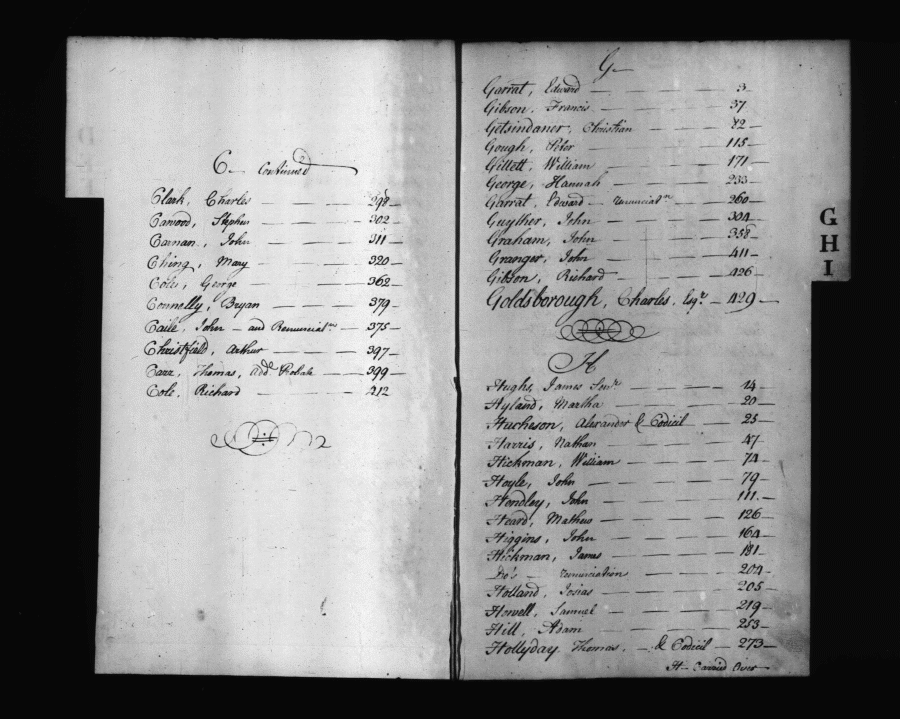 C Continued
Clark, Charles 298
Carwood, Stephen 302
Carnan, John 311
Ching, Mary 320
Coles, George 362
Connolly, Bryan 379
Caile, John and Renunciatn 375
Christfield, Arthur 397
Carr, Thomas, add Probate 399
Cole, Richard 412
G
Garrat, Edward 3
Gibson, Francis 37
Getsindaner, Christian
Gough, Peter 115
Gillett, William 171
George, Hannah 233
Garrat, Edward renunciatn 260
Guyther, John 304
Graham, John 358
Granger, John 411
Gibson, Richard 426
Goldsborough, Charles, Esqr 429
H
Hughs, James Senr 14
Hyland, Martha 20
Hutcheson, Alexander & Codicil 25
Harris, Nathan 47
Hickman, William 74
Hoyle, John 79
Hendley, John 111
Heard, Mathew 126
Higgins, John 164
Hickman, James 181
Do's renunciation 204
Holland, Josias 205
Howell, Samuel 219
Hill, Adam 253
Hollyday Thomas, & Codicil 273
H Carried Over
G
H
I